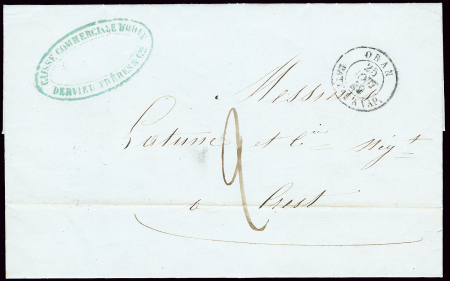 CAISSE COMMERCIALE D'ORAN
DERVIEU FRÈRES & Cie
ORAN
25
Messieurs
Latune et Cie Nég.t
2
a Crest